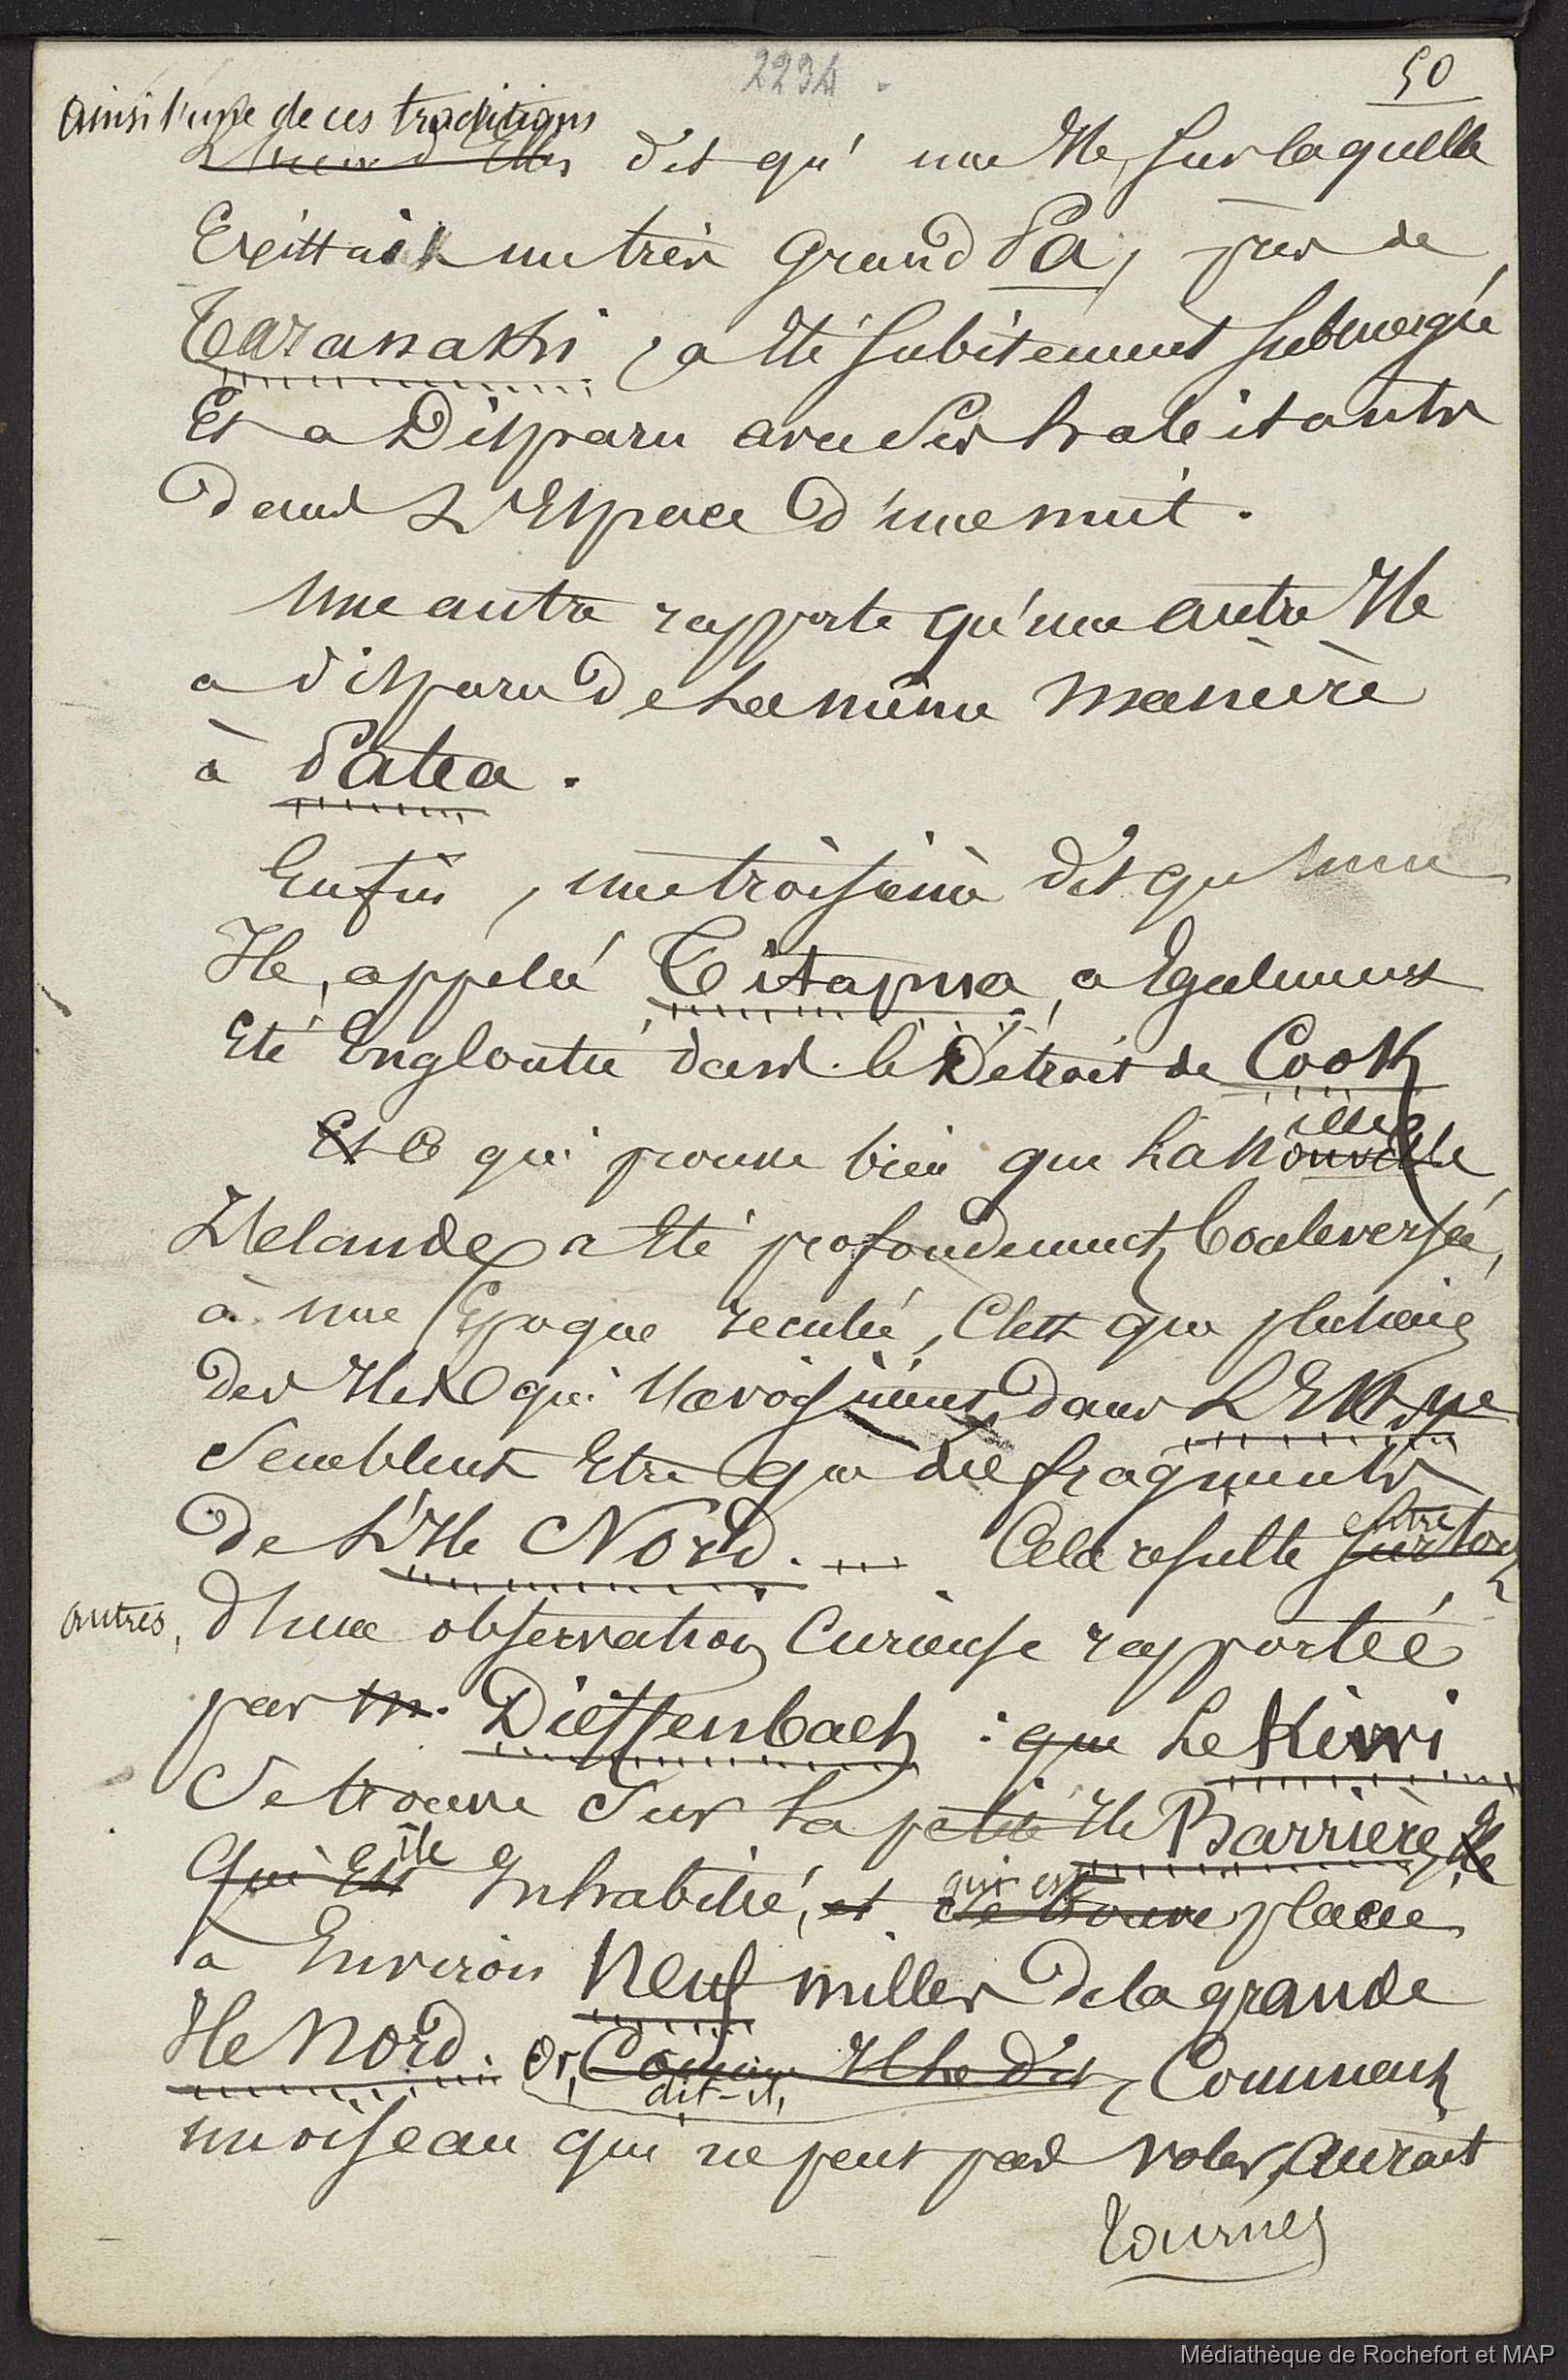 2234.
50
Ainsi l'une de ces traditions
dit qu' une Ile, sur laquelle
Existait un très Grand Pa, près de
Taranaki, a été subitement submergée
Et a Disparu avec ses habitants
dans L'Espace d'une nuit.
Une autre rapporte qu'une autre Ile
a disparu de La même manière
à Patea.
Enfin, une troisième dit qu'une
Ile, appelée Titapua, a Egalement
Eté Engloutie dans le Détroit de Cook
elle
Et Ce qui prouve bien que La Nouvelle
Zélande a été profondément bouleversée,
à une Epoque reculée, C'est que plusieurs
des Iles qui l'avoisinent, dans L'Est, ne
Semblent Etre que des fragments
de L'Ile Nord. Cela résulte surtout
entre
autres, d'une observation Curieuse rapportée
par M. Dieffenbach : que Le Kiwi
Se trouve sur La petite Ile Barrière, Ile
île
Qui Est Inhabitée, et se trouve placée
qui est
à Environ Neuf milles de la grande
Ile Nord. Or, Comme Il Le dit, Comment
dit-il,
un oiseau qui ne peut pas voler, aurait
Tournez
Médiathèque de Rochefort et MAP